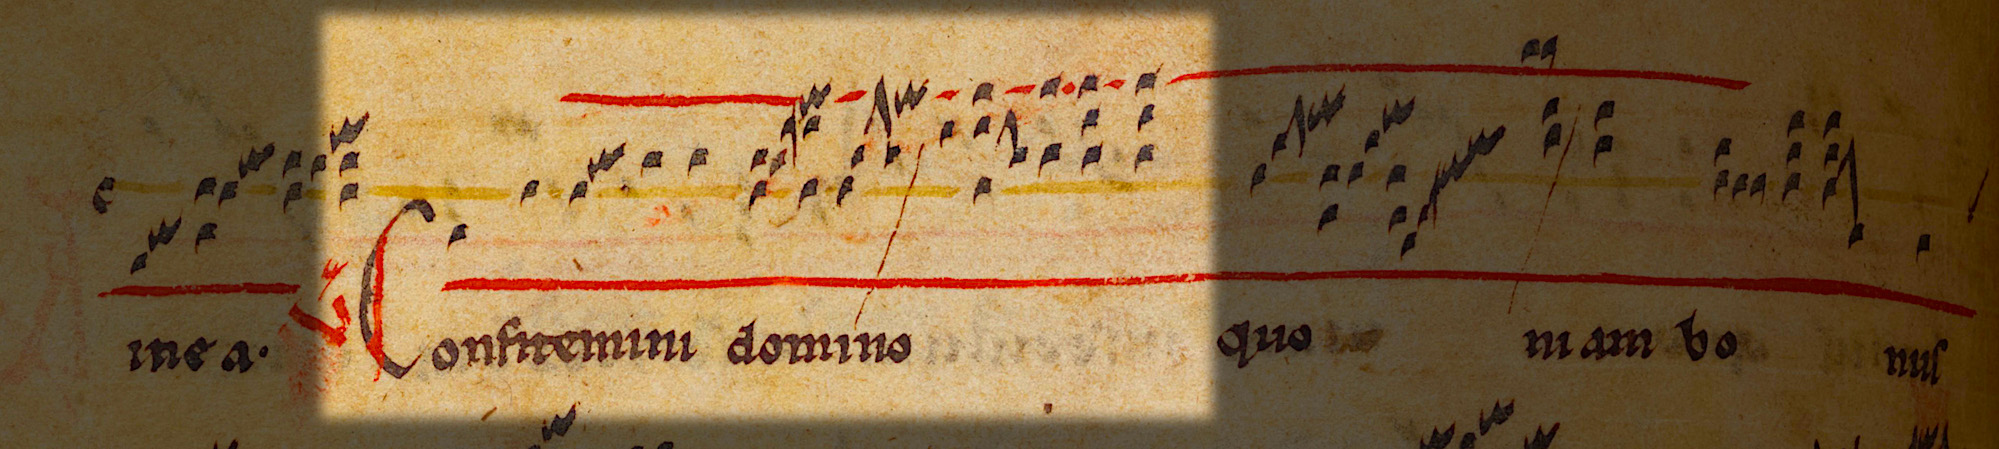 mea. V Confitemini domino quo niam bo nus